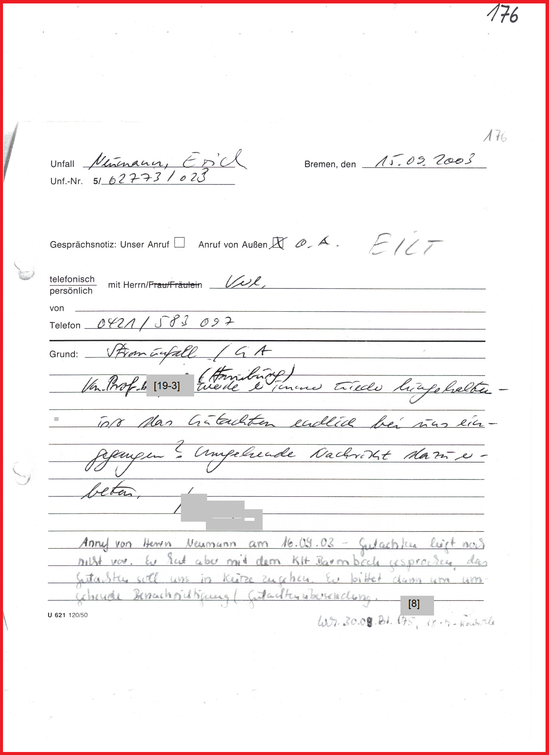 176
176
Unfall Neumann, Erich Bremen, den 15.09.2003
Unf.-Nr. 5/ 02773/023
Gesprächsnotiz: Unser Anruf Anruf von Außen o. A. EILT
telefonisch
persönlich mit Herrn/Frau/Fräulein
von
Telefon 0421/583 097
Grund: Stromunfall / GA
Von Prof. [19-3] (Hamburg) werde er immer wieder hingehalten –
ist das Gutachten endlich bei uns ein-
gegangen? Umgehende Nachricht dazu er-
beten.
Anruf von Herrn Neumann am 16.09.03 – Gutachten liegt noch
nicht vor. Er hat aber mit dem KH Barmbeck gesprochen, das
Gutachten soll uns in Kürze zugehen. Er bittet dann um um-
gehende Benachrichtigung/ Gutachtenübersendung.
[8]
U 621 120/50
30.09. Bl. 175,